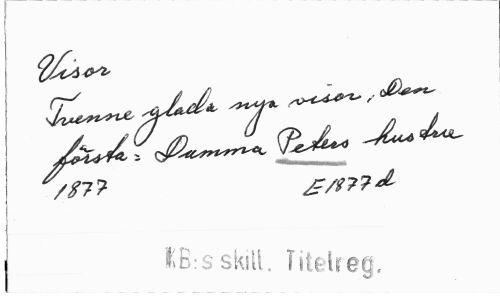 Visor
Tvenne glada nya visor, Den
första: Dumma Peters hustru
1877 E1877d
KB:s skill. Titelreg.